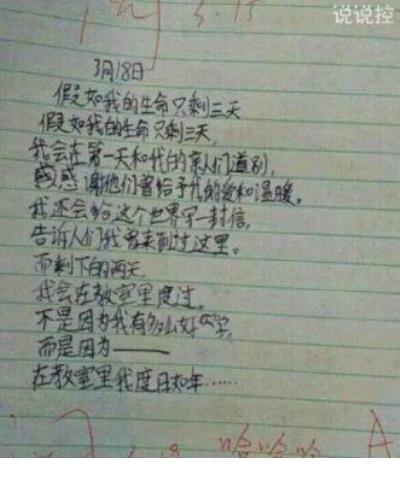 说说控
3.15
3月18日
假如我的生命只剩三天
假如我的生命只剩三天,
我会在第一天和我的亲人们道别,
感谢他们曾给予我的爱和温暖。
我还会给这个世界写一封信,
告诉人们我曾来到过这里。
而剩下的两天
我会在教室里度过,
不是因为我有多么好学,
而是因为——
在教室里我度日如年……
哈哈哈 A